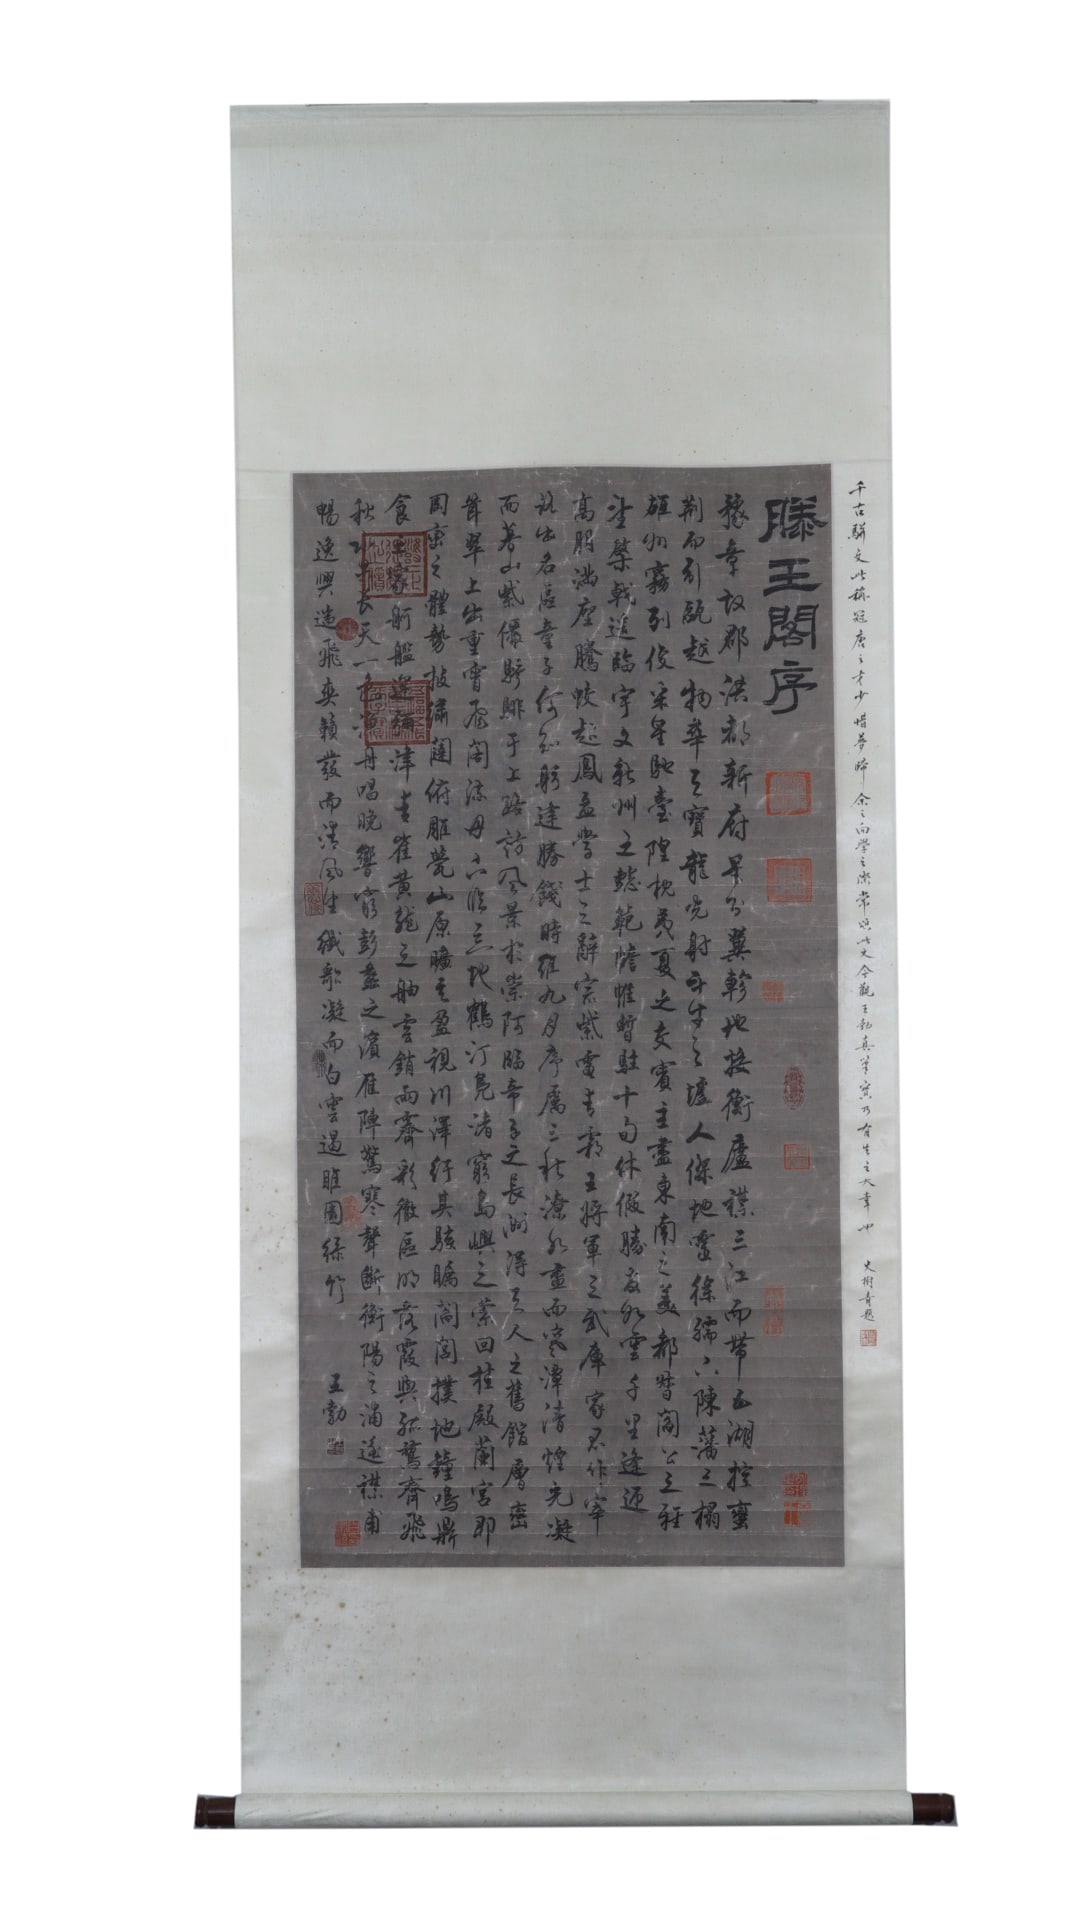 千古駢文此稱冠唐之才少惜夢啼余之向學之際常誦此文今觀王勃真筆實乃有生之大幸也 史樹青題
滕王閣序
豫章故郡洪都新府星分翼軫地接衡廬襟三江而帶五湖控蠻
荊而引甌越物華天寶龍光射牛斗之墟人傑地靈徐孺下陳蕃之榻
雄州霧列俊采星馳臺隍枕夷夏之交賓主盡東南之美都督閻公之雅
望棨戟遙臨宇文新州之懿範襜帷暫駐十旬休假勝友如雲千里逢迎
高朋滿座騰蛟起鳳孟學士之辭宗紫電青霜王將軍之武庫家君作宰
路出名區童子何知躬逢勝餞時維九月序屬三秋潦水盡而寒潭清煙光凝
而暮山紫儼驂騑于上路訪風景於崇阿臨帝子之長洲得天人之舊館層巒
聳翠上出重霄飛閣流丹下臨無地鶴汀鳧渚窮島嶼之縈回桂殿蘭宮即
岡巒之體勢披繡闥俯雕甍山原曠其盈視川澤紆其駭矚閭閻撲地鐘鳴鼎
食之家舸艦迷津青雀黃龍之舳雲銷雨霽彩徹區明落霞與孤鶩齊飛
秋水共長天一色漁舟唱晚響窮彭蠡之濱雁陣驚寒聲斷衡陽之浦遙襟甫
暢逸興遄飛爽籟發而清風生纖歌凝而白雲遏睢園綠竹 王勃